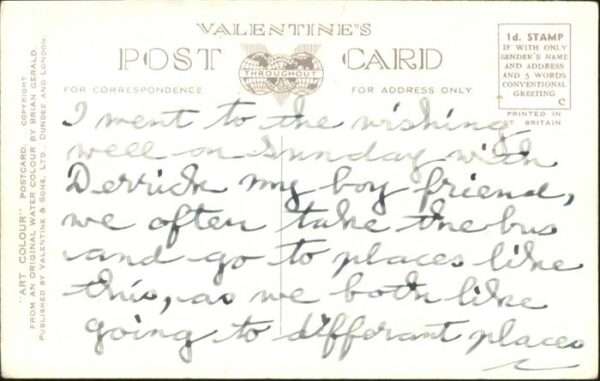 VALENTINE'S
POST CARD
THROUGHOUT
FOR CORRESPONDENCE
FOR ADDRESS ONLY
1d. STAMP
IF WITH ONLY
SENDER'S NAME
AND ADDRESS
AND 5 WORDS
CONVENTIONAL
GREETING
C
PRINTED IN
T BRITAIN
"ART COLOUR" POSTCARD. COPYRIGHT
FROM AN ORIGINAL WATER COLOUR BY BRIAN GERALD.
PUBLISHED BY VALENTINE & SONS, LTD. DUNDEE AND LONDON.
I went to the wishing
well on Sunday with
Derrick my boy friend,
we often take the bus
and go to places like
this, as we both like
going to differant places